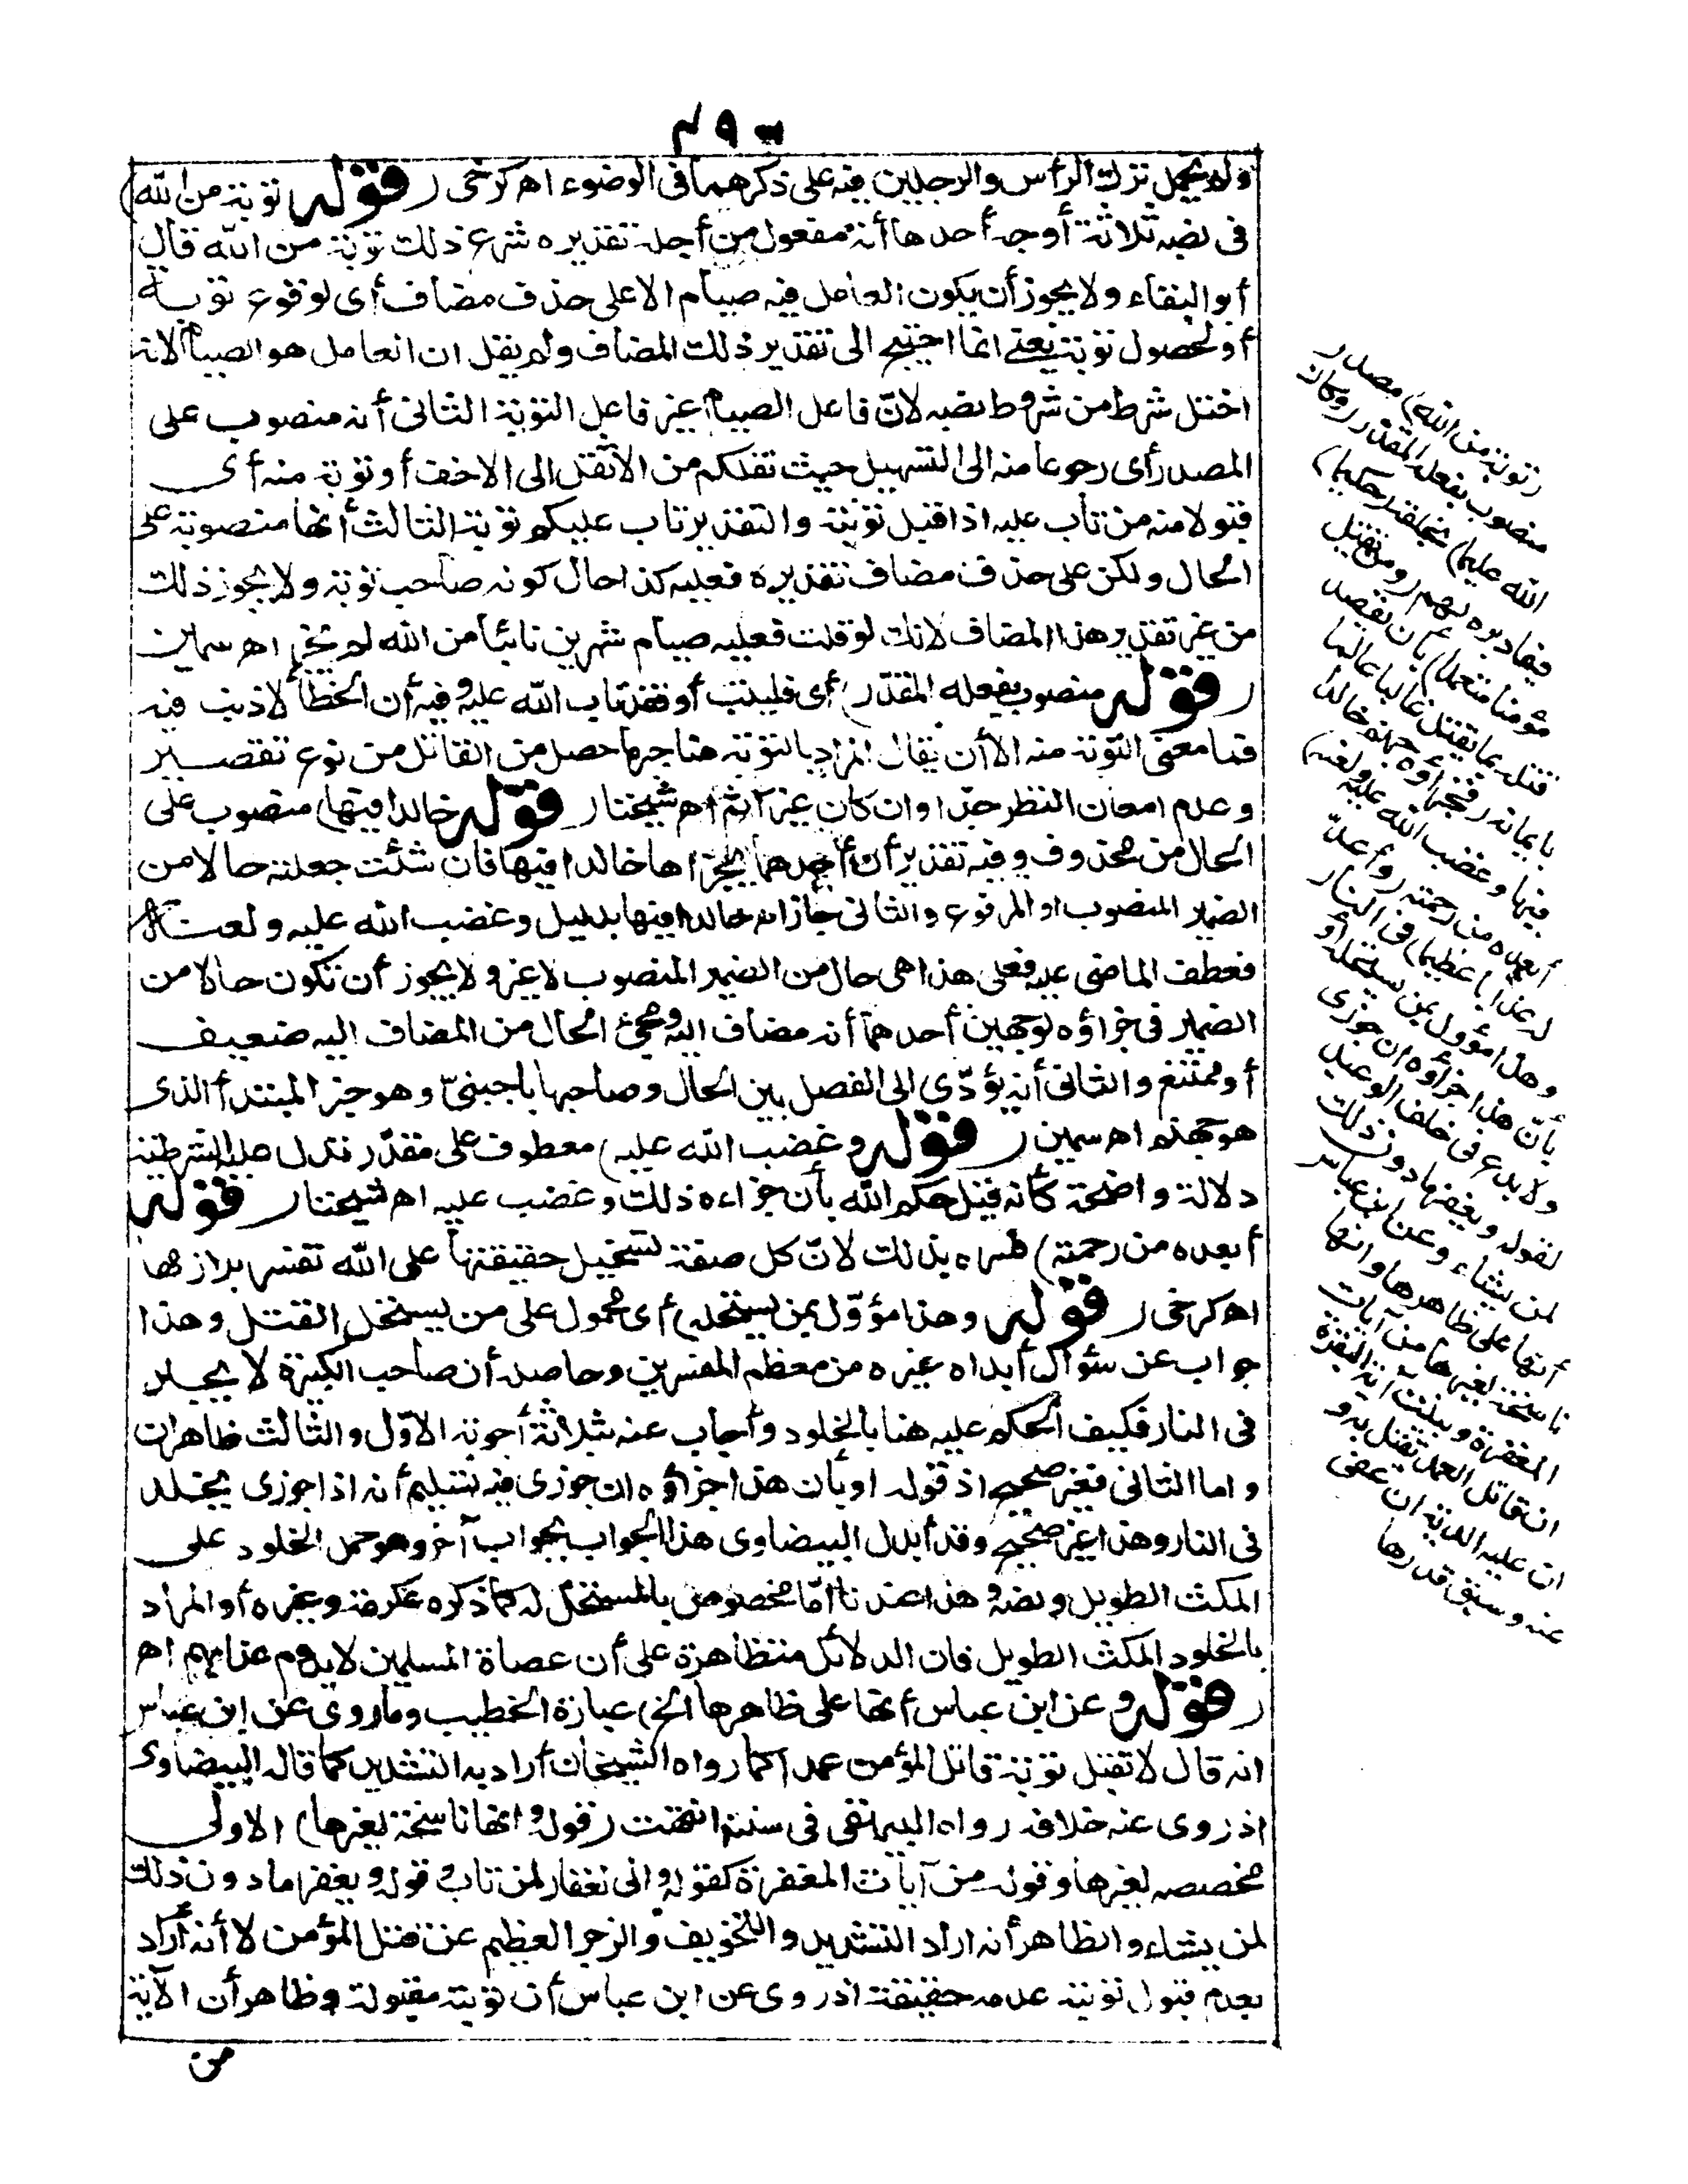 ٤٩٠
ولم يحمل ترك الرأس والرجلين فيه على ذكرهما فى الوضوء اه كرخى (قوله توبة من الله)
فى نصبه ثلاثة أوجه أحدها أنه مفعول من أجله تقديره شرع ذلك توبة من الله قال
أبو البقاء ولا يجوز أن يكون العامل فيه صيام الا على حذف مضاف أى لوقوع توبة
أو لحصول توبة يعنى انما احتيج الى تقدير ذلك المضاف ولم يقل ان العامل هو الصيام لانه
اختل شرط من شروط نصبه لانّ فاعل الصيام غير فاعل التوبة الثانى أنه منصوب على
المصدر أى رجوعا منه الى التسهيل حيث نقلكم من الأثقل الى الاخف أو توبة منه أى
قبولا منه من تاب عليه اذا قبل توبته والتقدير تاب عليكم توبة الثالث أنها منصوبة على
الحال ولكن على حذف مضاف تقديره فعليه كذا حال كونه صاحب توبة ولا يجوز ذلك
من غير تقدير هذا المضاف لانك لو قلت فعليه صيام شهرين تائبا من الله لم يجز اه سمين
(قوله منصوب بفعله المقدّر) أى فليتب أو فقد تاب الله عليه وفيه أن الخطأ لا ذنب فيه
فما معنى التوبة منه الا أن يقال المراد بالتوبة هنا جبر ما حصل من القاتل من نوع تقصير
وعدم امعان النظر جدّا وان كان غير آثم اه شيخنا (قوله خالدا فيها) منصوب على
الحال من محذوف وفيه تقديرأن أحدهما يجزاها خالدا فيها فان شئت جعلته حالا من
الضمير المنصوب او المرفوع والثانى جازاه خالدا فيها بدليل وغضب الله عليه ولعنه
فعطف الماضى عليه فعلى هذا هى حال من الضمير المنصوب لا غير ولا يجوز أن تكون حالا من
الضمير فى جزاؤه لوجهين أحدهما أنه مضاف اليه ومجىء الحال من المضاف اليه ضعيف
أو ممتنع والثانى أنه يؤدّى الى الفصل بين الحال وصاحبها بأجنبىّ وهو خبر المبتدأ الذى
هو جهنم اه سمين (قوله وغضب الله عليه) معطوف على مقدّر تدل عليه الشرطية
دلالة واضحة كأنه قيل حكم الله بأن جزاءه ذلك وغضب عليه اه شيخنا (قوله
أبعده من رحمته) فسره بذلك لانّ كل صفة تستحيل حقيقتها على الله تفسر بلازمها
اه كرخى (قوله وهذا مؤوّل بمن يستحله) أى محمول على من يستحل القتل وهذا
جواب عن سؤال أبداه غيره من معظم المفسرين وحاصله أن صاحب الكبيرة لا يخلد
فى النار فكيف الحكم عليه هنا بالخلود وأجاب عنه بثلاثة أجوبة الاوّل والثالث ظاهران
واما الثانى فغير صحيح اذ قوله او بأن هذا جزاؤه ان جوزى فيه تسليم أنه اذا جوزى يخلد
فى النار وهذا غير صحيح وقد أبدل البيضاوى هذا الجواب بجواب آخر وهو حمل الخلود على
المكث الطويل ونصه وهذا عندنا امّا مخصوص بالمستحل له كما ذكره عكرمة وغيره أو المراد
بالخلود المكث الطويل فان الدلائل متظاهرة على أن عصاة المسلمين لا يدوم عذابهم اه
(قوله وعن ابن عباس أنها على ظاهرها الخ) عبارة الخطيب وما روى عن ابن عباس
انه قال لا تقبل توبة قاتل المؤمن عمدا كما رواه الشيخان أراد به التشديد كما قاله البيضاوى
اذ روى عنه خلافه رواه البيهقى فى سننه انتهت (قوله وانها ناسخة لغيرها) الاولى
مخصصه لغيرها وقوله من آيات المغفرة كقوله وانى لغفار لمن تاب وقوله ويغفر ما دون ذلك
لمن يشاء والظاهر أنه اراد التشديد والتخويف والزجر العظيم عن قتل المؤمن لا أنه أراد
بعدم قبول توبته عدمه حقيقة اذ روى عن ابن عباس أن توبته مقبولة وظاهر أن الآية
من
(توبة من الله) مصدر
منصوب بفعله المقدر (وكان
الله عليما) بخلقه (حكيما)
فيما دبره لهم (ومن يقتل
مؤمنا متعمدا) بأن يقصد
قتله بما يقتل غالبا عالما
بايمانه (فجزاؤه جهنم خالدا
فيها وغضب الله عليه ولعنه)
أبعده من رحمته (وأعدّ
له عذابا عظيما) فى النار
وهذا مؤوّل بمن يستحله أو
بأنّ هذا جزاؤه ان جوزى
ولا بدع فى خلف الوعيد
لقوله ويغفر ما دون ذلك
لمن يشاء وعن ابن عباس
أنها على ظاهرها وانها
ناسخة لغيرها من آيات
المغفرة وبينت آية البقرة
ان قاتل العمد يقتل به و
ان عليه الدية ان عفى
عنه وسبق قدرها